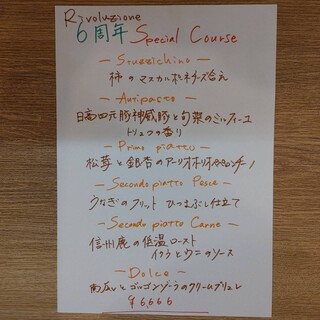 Rivoluzione
6周年 Special Course
— Stuzzichino —
柿のマスカルポーネチーズ合え
— Antipasto —
日高四元豚神威豚と旬菜のミルフィーユ
トリュフの香り
— Primo piatto —
松茸と銀杏のアーリオオーリオペペロンチーノ
— Secondo piatto Pesce —
うなぎのフリット ひつまぶし仕立て
— Secondo piatto Carne —
信州鹿の低温ロースト
イクラとウニのソース
— Dolce —
南瓜とゴルゴンゾーラのクリームブリュレ
¥6,666